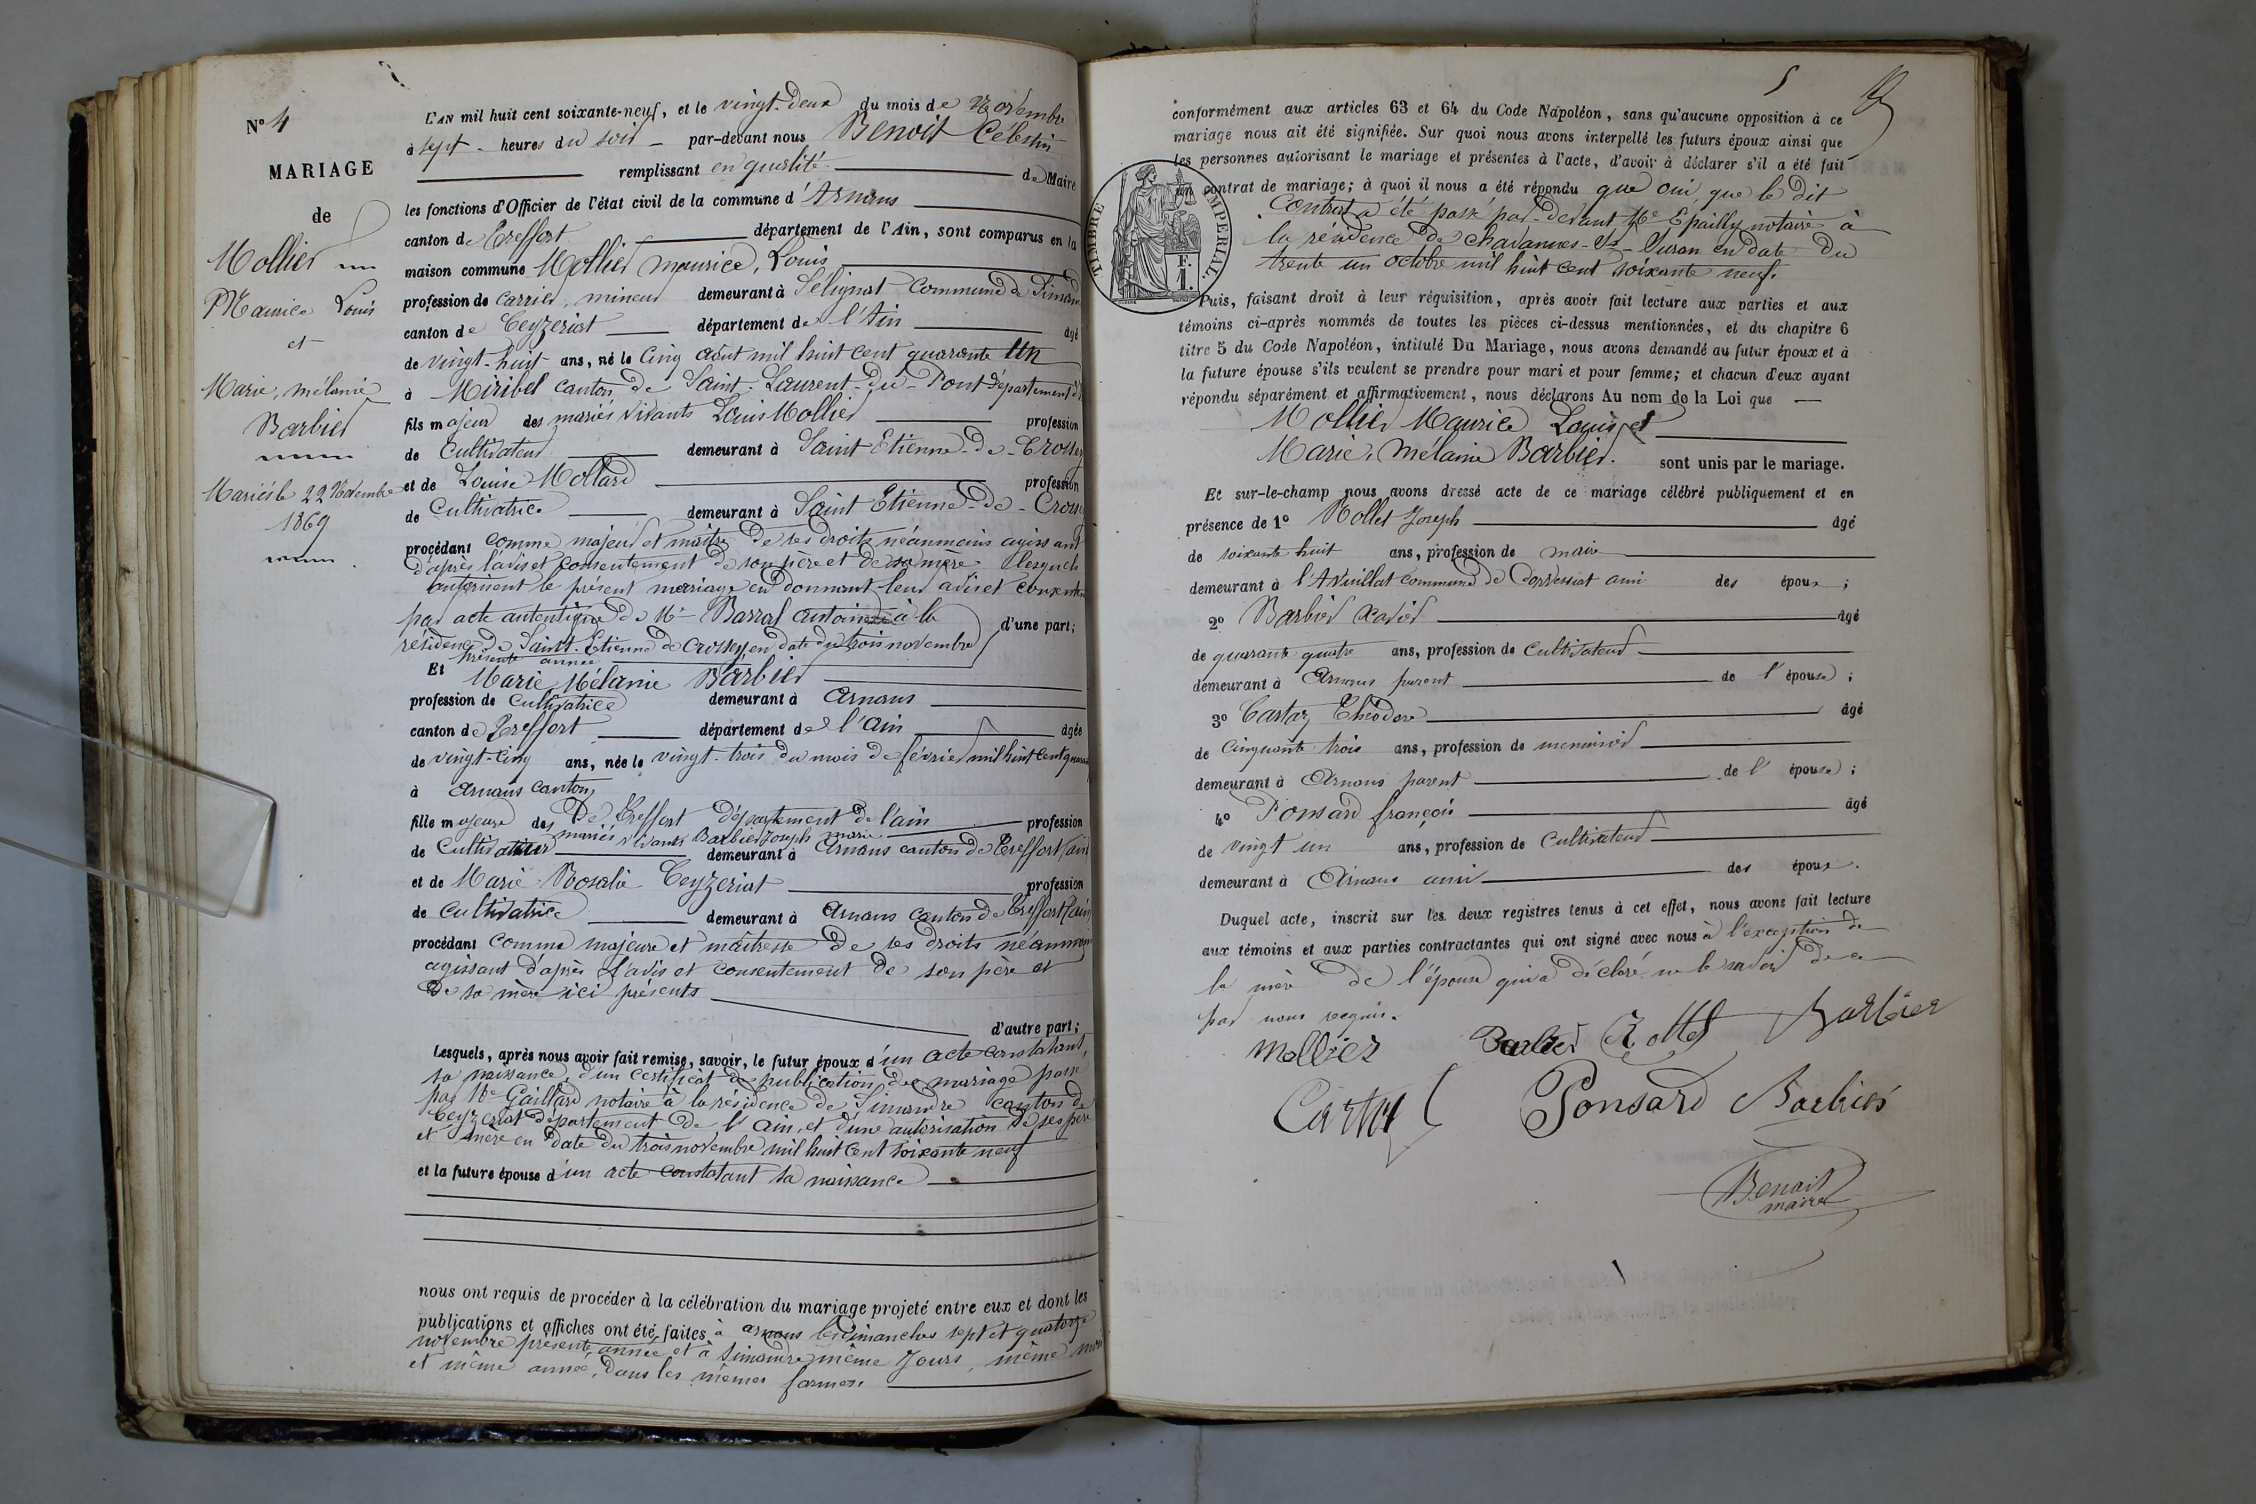 N° 4
MARIAGE
de
Mollier
Maurice Louis
et
Marie, mélanie
Barbier
Mariés le 22 Novembre
1869
L'AN mil huit cent soixante-neuf, et le vingt-deux du mois de Novembre
à sept heures du soir par-devant nous Benoit Célestin
remplissant en qualité de Maire
les fonctions d'Officier de l'état civil de la commune d'Arnans
canton de Treffort département de l'Ain, sont comparus en la
maison commune Mollier maurice, Louis
profession de carrier, mineur demeurant à Sélignat commune de Simandre
canton de Ceyzeriat département de l'Ain âgé
de vingt-huit ans, né le Cinq août mil huit cent quarante Un
à Miribel canton de Saint-Laurent-du-Pont département de
fils majeur des mariés vivants Louis Mollier profession
de Cultivateur demeurant à Saint Etienne-de-Crossey
et de Louise Mollard profession
de Cultivatrice demeurant à Saint Etienne-de-Crossey
procédant comme majeur et maître de ses droits néanmoins agissant
d'après l'avis et consentement de son père et de sa mère lesquels
autorisent le présent mariage en donnant leur avis et consentement
par acte autentique de Me Barral antoine à la
résidence de Saint-Etienne de Crossey en date du trois novembre d'une part;
présente année
Et Marie Mélanie Barbier
profession de Cultivatrice demeurant à Arnans
canton de Treffort département de l'Ain âgée
de vingt-cinq ans, née le vingt-trois du mois de février mil huit cent quarante
à Arnans canton
fille majeure des De Treffort département de l'ain profession
mariés vivants Barbier Joseph marie
de Cultivateur demeurant à Arnans canton de Treffort (ain
et de Marie Rosalie Ceyzeriat profession
de Cultivatrice demeurant à Arnans canton de Treffort (ain
procédant comme majeure et maîtresse de ses droits néanmoins
agissant d'après l'avis et consentement de son père et
de sa mère ici présents
d'autre part;
Lesquels, après nous avoir fait remise, savoir, le futur époux d'un acte constatant
sa naissance, d'un certificat de publication de mariage passé
par Me Gaillard notaire à la résidence de Simandre canton de
Ceyzeriat département de l'Ain, et d'une autorisation de ses père
et mère en date du trois novembre mil huit cent soixante neuf
et la future épouse d'un acte constatant sa naissance
nous ont requis de procéder à la célébration du mariage projeté entre eux et dont les
publications et affiches ont été faites à arnans les dimanches sept et quatorze
novembre présente année et à Simandre même jours, même mois
et même année, dans les mêmes formes.
5
conformément aux articles 63 et 64 du Code Napoléon, sans qu'aucune opposition à ce
mariage nous ait été signifiée. Sur quoi nous avons interpellé les futurs époux ainsi que
les personnes autorisant le mariage et présentes à l'acte, d'avoir à déclarer s'il a été fait
un contrat de mariage; à quoi il nous a été répondu que oui que le dit
Contrat a été passé par-devant Me Epailly notaire à
la résidence de chavannes-sr-Suran en date du
trente un octobre mil huit cent soixante neuf.
TIMBRE IMPERIAL.
F.
1.
Puis, faisant droit à leur réquisition, après avoir fait lecture aux parties et aux
témoins ci-après nommés de toutes les pièces ci-dessus mentionnées, et du chapitre 6
titre 5 du Code Napoléon, intitulé Du Mariage, nous avons demandé au futur époux et à
la future épouse s'ils veulent se prendre pour mari et pour femme; et chacun d'eux ayant
répondu séparément et affirmativement, nous déclarons Au nom de la Loi que
Mollier Maurice Louis et
Marie, Mélanie Barbier. sont unis par le mariage.
Et sur-le-champ nous avons dressé acte de ce mariage célébré publiquement et en
présence de 1° Rollet Joseph âgé
de soixante huit ans, profession de maire
demeurant à l'Avuillat commune de Corvessiat ami des époux;
2° Barbier xavier âgé
de quarante quatre ans, profession de Cultivateur
demeurant à Arnans parent de l'épouse;
3° Cartaz Théodore âgé
de cinquante trois ans, profession de menuisier
demeurant à Arnans parent de l'épouse;
4° Ponsard françois âgé
de vingt un ans, profession de Cultivateur
demeurant à Arnans ami des époux.
Duquel acte, inscrit sur les deux registres tenus à cet effet, nous avons fait lecture
aux témoins et aux parties contractantes qui ont signé avec nous à l'exception de
la mère de l'épouse qui a déclaré ne le savoir de ce
par nous requis.
Mollier Barbier Rollet Barbier
Cartaz Ponsard Barbier
Benoit
maire